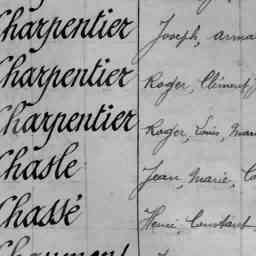 Charpentier Joseph, arma
Charpentier Roger, Clément, J
Charpentier Roger, Louis, Mar
Chasle Jean, Marie, Ca
Chassé Henri, Constant
Chaumont